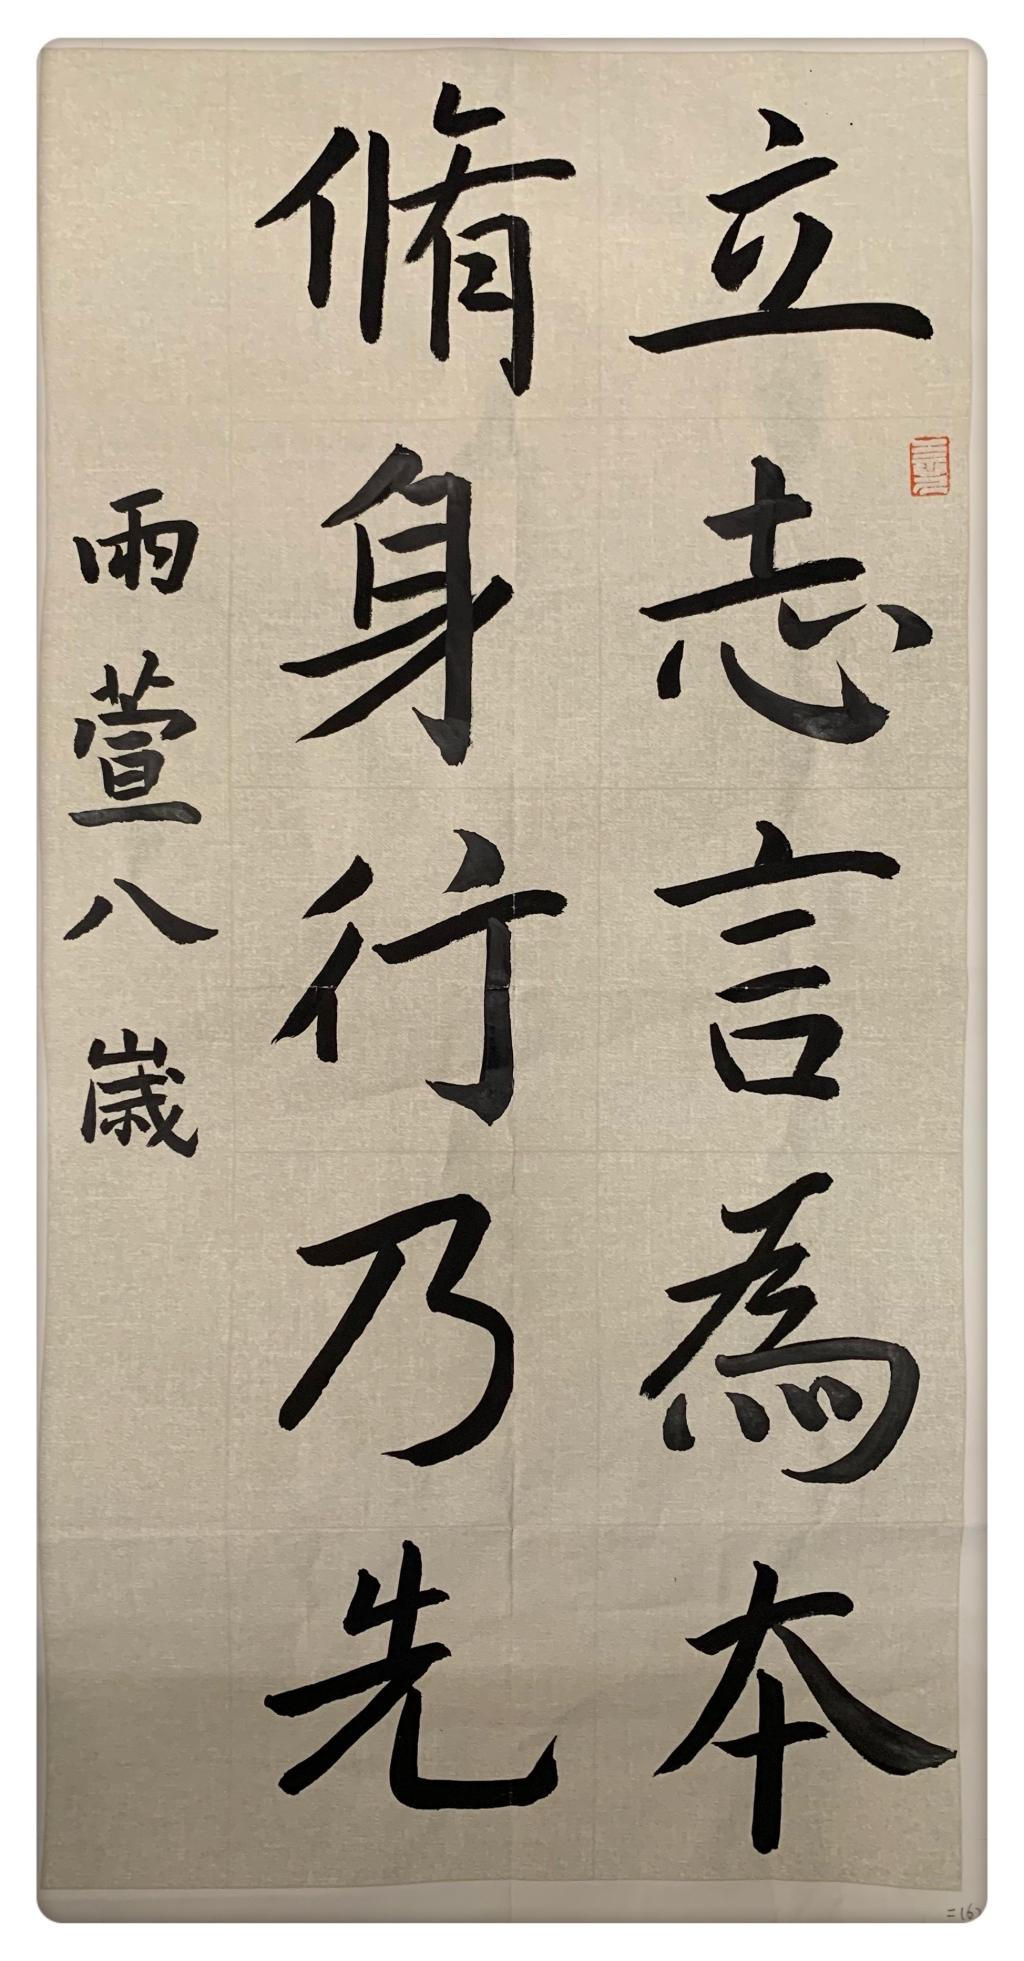 立志言為本
脩身行乃先
雨萱八歲